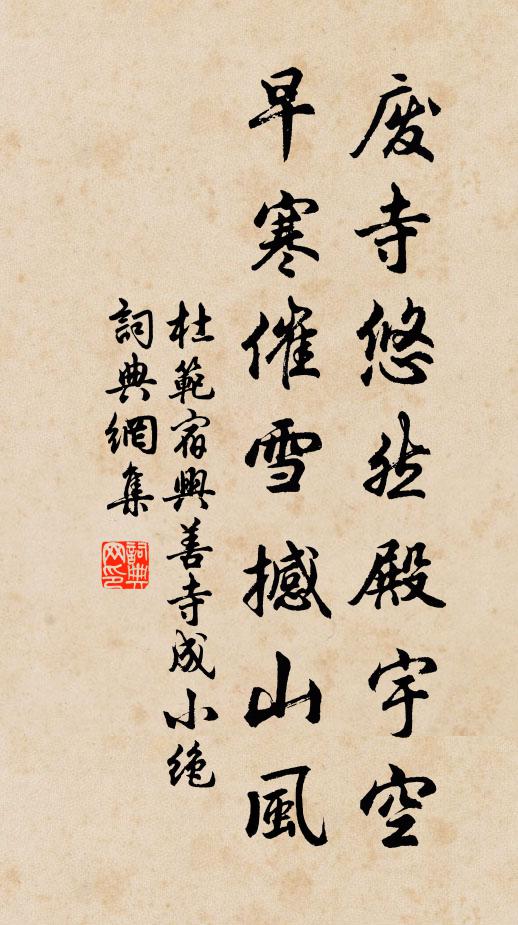 废寺悠然殿宇空
早寒催雪撼山風
杜範宿興善寺成小绝
詞典網集
詞典网印